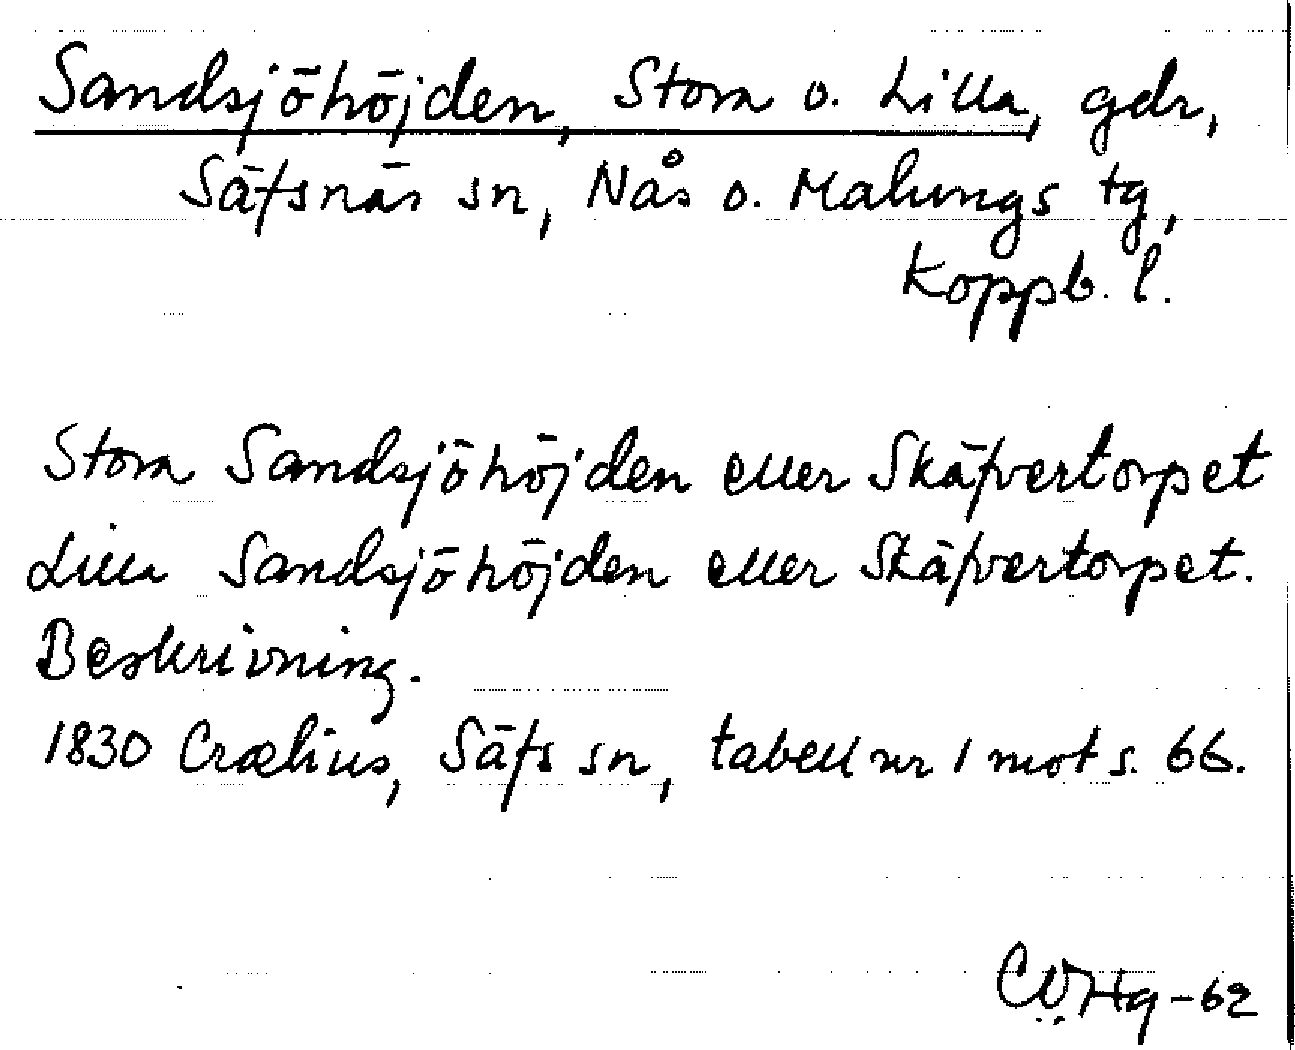 Sandsjöhöjden, Stora o. Lilla, gdr,
Säfsnäs sn, Nås o. Malungs tg,
Koppb. l.
Stora Sandsjöhöjden eller Skäfvertorpet
Lilla Sandsjöhöjden eller Skäfvertorpet.
Beskrivning.
1830 Crælius, Säfs sn, tabell nr 1 mot s. 66.
-62